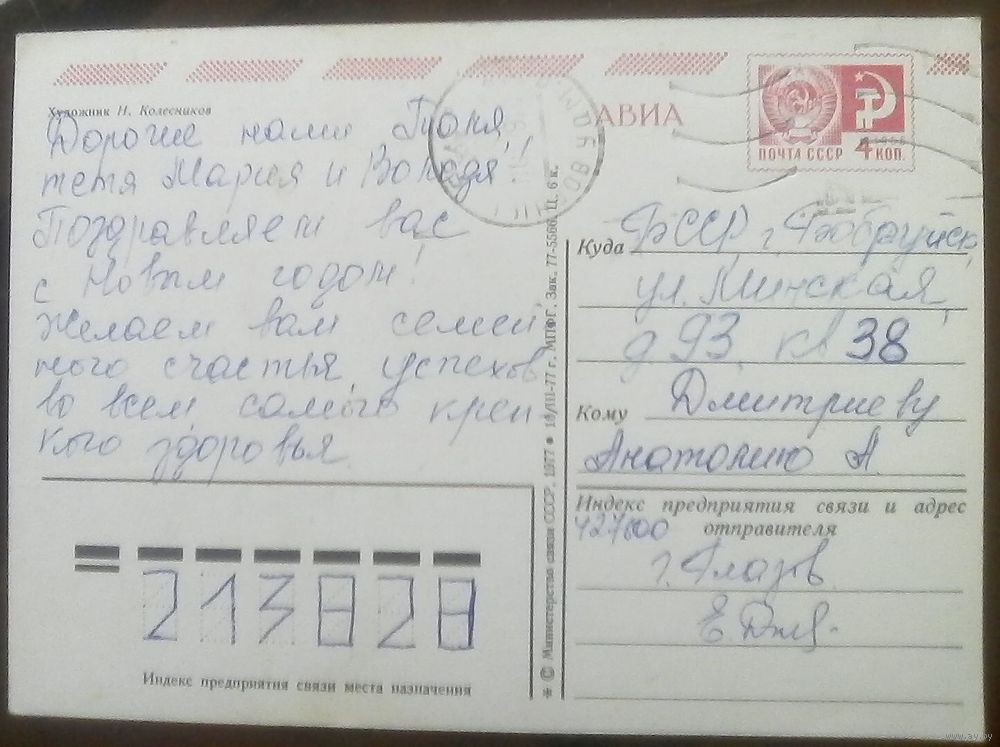 Художник Н. Колесников
АВИА
ПОЧТА СССР 4 КОП.
Дорогие наши Толя,
тетя Мария и Володя!
Поздравляем вас
с Новым годом!
Желаем вам семей
ного счастья, успехов
во всем самого креп
кого здоровья
Куда БССР г. Бобруйск
ул. Минская,
д 93 кв 38
Кому Дмитриеву
Анатолию А.
Индекс предприятия связи и адрес
отправителя
427600
г. Глазов
213828
Индекс предприятия связи места назначения
* © Министерства связи СССР. 1977 • 18/III-77 г. МПФГ. Зак. 77-5566. Ц. 6 к.
www.ay.by